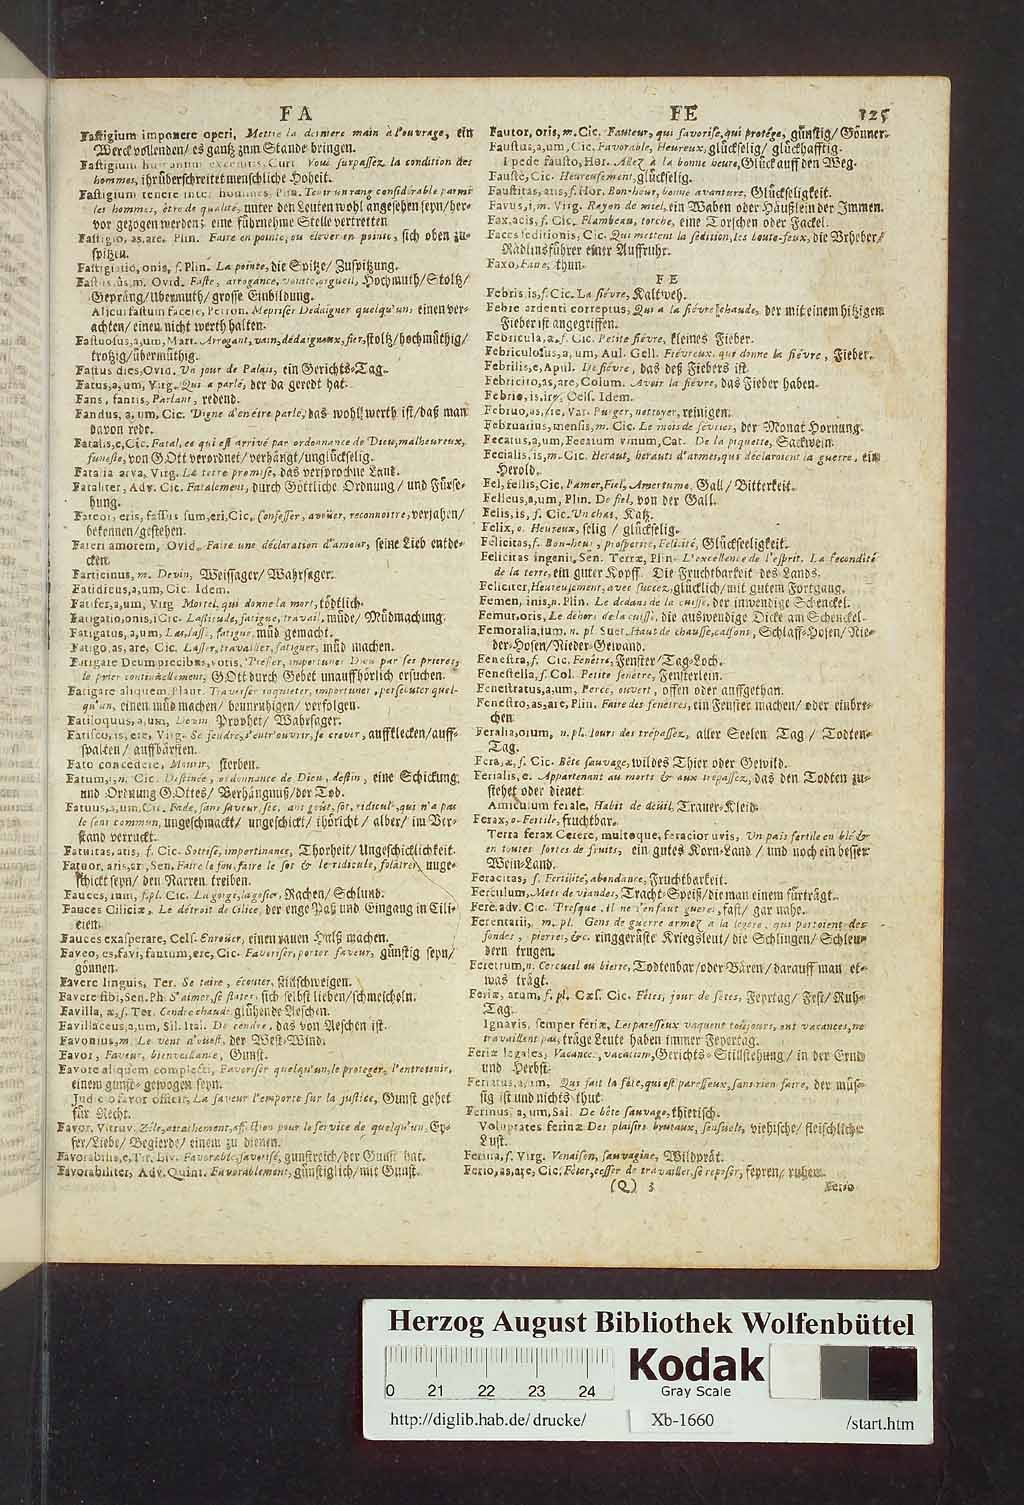 FA
Fastigium imponere operi, Mettre la derniere main à l'ouvrage, ein
Werck vollenden/ es gantz zum Stande bringen.
Fastigium humanum exceditis, Curt. Vous surpassez la condition des
hommes, ihr überschreitet menschliche Hoheit.
Fastigium tenere inter homines, Plin. Tenir un rang considérable parmi
les hommes, être de qualité, unter den Leuten wohl angesehen seyn/ her-
vor gezogen werden; eine führnehme Stelle vertretten
Fastigio, as, are, Plin. Faire en pointe, ou élever en pointe, sich oben zu-
spitzen.
Fastigiatio, onis, f. Plin. La pointe, die Spitze/ Zuspitzung.
Fastus, ûs, m. Ovid. Faste, arrogance, vanité, orgueil, Hochmuth/ Stoltz/
Gepräng/ Ubermuth/ grosse Einbildung.
Alicui fastum facere, Petron. Mepriser Dedaigner quelqu'un, einen ver-
achten/ einen nicht werth halten.
Fastuosus, a, um, Mart. Arrogant, vain, dédaigneux, fier, stoltz/ hochmüthig/
trotzig/ übermüthig.
Fastus dies, Ovid. Un jour de Palais, ein Gerichts-Tag.
Fatus, a, um, Virg. Qui a parlé, der da geredt hat.
Fans, fantis, Parlant, redend.
Fandus, a, um, Cic. Digne d'en être parlé, das wohl werth ist/ daß man
davon rede.
Fatalis, e, Cic. Fatal, ce qui est arrivé par ordonnance de Dieu, malheureux,
funeste, von GOtt verordnet/ verhängt/ unglückselig.
Fatalia arva, Virg. La terre promise, das versprochne Land.
Fataliter, Adv. Cic. Fatalement, durch Göttliche Ordnung/ und Fürse-
hung.
Fateor, eris, fassus sum, eri, Cic. Confesser, avoüer, reconnoitre, verjahen/
bekennen/ gestehen.
Fateri amorem, Ovid. Faire une déclaration d'amour, seine Lieb entde-
cken.
Fatidicinus, m. Devin, Weissager/ Wahrsager.
Fatidicus, a, um, Cic. Idem.
Fatifer, a, um, Virg. Mortel, qui donne la mort, tödtlich.
Fatigatio, onis, f. Cic. Lassitude, fatigue, travail, müde/ Müdmachung.
Fatigatus, a, um, Las, lassé, fatigué, müd gemacht.
Fatigo, as, are, Cic. Lasser, travailler, fatiguer, müd machen.
Fatigare Deum precibus, votis, Presser, importuner Dieu par ses prieres,
le prier continüellement, GOtt durch Gebet unauffhörlich ersuchen.
Fatigare aliquem, Plaut. Traverser inquieter, importuner, persecuter quel-
qu'un, einen müd machen/ beunruhigen/ verfolgen.
Fatiloquus, a, um, Devin Prophet/ Wahrsager.
Fatisco, is, ere, Virg. Se fendre, s'entr'ouvrir, se crever, auffklecken/ auff-
spalten/ auffbärsten.
Fato concedere, Mourir, sterben.
Fatum, i, n. Cic. Destinée, ordonnance de Dieu, destin, eine Schickung,
und Ordnung GOttes/ Verhängniß/ der Tod.
Fatuus, a, um, Cic. Fade, sans saveur, sec, sans goût, sot, ridicul, qui n'a pas
le sens commun, ungeschmackt/ ungeschickt/ thöricht/ alber/ im Ver-
stand verruckt.
Fatuitas, atis, f. Cic. Sottise, impertinance, Thorheit/ Ungeschicklichkeit.
Fatuor, aris, ari, Sen. Faire le fou, faire le sot & le ridicule, folâtrer, unge-
schickt seyn/ den Narren treiben.
Fauces, ium, f. pl. Cic. La gorge, la gosier, Rachen/ Schlund.
Fauces Ciliciæ, Le détroit de Cilice, der enge Paß und Eingang in Cili-
cien.
Fauces exasperare, Cels. Enroüer, einen rauen Halß machen.
Faveo, es, favi, fautum, ere, Cic. Favoriser, porter faveur, günstig seyn/
gönnen.
Favere linguis, Ter. Se taire, écouter, stillschweigen.
Favere sibi, Sen. Ph. S'aimer, se flater, sich selbst lieben/ schmeicheln.
Favilla, æ, f. Ter. Cendre chaude, glühende Aeschen.
Favillaceus, a, um, Sil. Ital. De cendre, das von Aeschen ist.
Favonius, m. Le vent d'ouest, der West-Wind.
Favor, Faveur, bienveillance, Gunst.
Favore aliquem complecti, Favoriser quelqu'un, le proteger, l'entretenir,
einem gunst- gewogen seyn.
Judicio favor officit, La faveur l'emporte sur la justice, Gunst gehet
für Recht.
Favor, Vitruv. Zéle, attachement, affection pour le service de quelqu'un, Ey-
fer/ Liebe/ Begierde/ einem zu dienen.
Favorabilis, e, Tit. Liv. Favorable, favorisé, gunstreich/ der Gunst hat.
Favorabiliter, Adv. Quint. Favorablement, günstiglich/ mit Gunst.
FE 125
Fautor, oris, m. Cic. Fauteur, qui favorise, qui protége, günstig/ Gönner.
Faustus, a, um, Cic. Favorable, Heureux, glückselig/ glückhafftig.
I pede fausto, Hor. Allez à la bonne heure, Glück auff den Weg.
Fauste, Cic. Heureusement, glückselig.
Faustitas, atis, f. Hor. Bon-heur, bonne avanture, Glückseligkeit.
Favus, i, m. Virg. Rayon de miel, ein Waben oder Häußlein der Immen.
Fax, acis, f. Cic. Flambeau, torche, eine Torschen oder Fackel.
Faces seditionis, Cic. Qui mettent la sédition, les boute-feux, die Urheber/
Rädlinsführer einer Auffruhr.
Faxo, Faire, thun.
FE
Febris, is, f. Cic. La fiévre, Kaltweh.
Febre ardenti correptus, Qui a la fiévre chaude, der mit einem hitzigem
Fieber ist angegriffen.
Febricula, æ, f. Cic. Petite fiévre, kleines Fieber.
Febriculosus, a, um, Aul. Gell. Fiévreux, qui donne la fiévre, Fieber.
Febrilis, e, Apul. De fiévre, das deß Fiebers ist.
Febricito, as, are, Colum. Avoir la fiévre, das Fieber haben.
Febrio, is, ire, Cels. Idem.
Februo, as, are, Var. Purger, nettoyer, reinigen.
Februarius, mensis, m. Cic. Le mois de février, der Monat Hornung.
Fecatus, a, um, Fecatum vinum, Cat. De la piquette, Sackwein.
Fecialis, is, m. Cic. Heraut, herauts d'armes, qui déclaroient la guerre, ein
Herold.
Fel, fellis, Cic. l'amer, Fiel, Amertume, Gall/ Bitterkeit.
Felleus, a, um, Plin. De fiel, von der Gall.
Felis, is, f. Cic. Un chat, Katz.
Felix, o. Heureux, selig/ glückselig.
Felicitas, f. Bon-heur, prosperité, Felicité, Glückseeligkeit.
Felicitas ingenii, Sen. Terræ, Plin. L'excellence de l'esprit. La fecondité
de la terre, ein guter Kopff. Die Fruchtbarkeit des Lands.
Feliciter, Heureusement, avec succez, glücklich/ mit gutem Fortgang.
Femen, inis, n. Plin. Le dedans de la cuisse, der inwendige Schenckel.
Femur, oris, Le dehors de la cuisse, die auswendige Dicke am Schenckel.
Femoralia, ium, n. pl. Suet. Haut de chausse, calsons, Schlaff-Hosen/ Nie-
der-Hosen/ Nieder-Gewand.
Fenestra, f. Cic. Fenêtre, Fenster/ Tag-Loch.
Fenestella, f. Col. Petite fenêtre, Fensterlein.
Fenestratus, a, um, Percé, ouvert, offen oder auffgethan.
Fenestro, as, are, Plin. Faire des fenêtres, ein Fenster machen/ oder einbre-
chen.
Feralia, orum, n. pl. Jours des trépassez, aller Seelen Tag/ Todten-
Tag.
Fera, æ, f. Cic. Bête sauvage, wildes Thier oder Gewild.
Ferialis, e. Appartenant au morts & aux trépassez, das den Todten zu-
stehet oder dienet.
Amiculum ferale, Habit de deüil, Trauer-Kleid.
Ferax, o. Fertile, fruchtbar.
Terra ferax Cerere, multoque, feracior uvis, Un païs fertile en blé &
en toutes sortes de fruits, ein gutes Korn-Land/ und noch ein besser
Wein-Land.
Feracitas, f. Fertilité, abondance, Fruchtbarkeit.
Ferculum, Mets de viandes, Tracht-Speiß/ die man einem fürträgt.
Fere, adv. Cic. Presque, il ne s'enfaut gueres, fast/ gar nahe.
Ferentarii, m. pl. Gens de guerre armez à la legere, qui portoient des
fondes, pierres, &c. ringgerüste Kriegsleut/ die Schlingen/ Schleu-
dern trugen.
Feretrum, n. Cercueil ou bierre, Todtenbar/ oder Bären/ darauff man et-
was trägt.
Feriæ, arum, f. pl. Cæs. Cic. Fêtes, jour de fêtes, Feyrtag/ Fest/ Ruh-
Tag.
Ignavis, semper feriæ, Les paresseux vaquent toujours, ont vacances, ne
travaillent pas, träge Leute haben immer Feyertag.
Feriæ legales, Vacance, vacation, Gerichts-Stillstehung/ in der Ernd
und Herbst.
Feriatus, a, um, Qui fait la fête, qui est paresseux, sans rien faire, der müs-
sig ist und nichts thut.
Ferinus, a, um, Sal. De bête sauvage, thierisch.
Voluptates ferinæ Des plaisirs brutaux, sensuels, viehische/ fleischliche
Lust.
Ferina, f. Virg. Venaison, sauvagine, Wildprät.
Ferio, as, are, Cic. Fêter, cesser de travailler, se reposer, feyren/ ruhen.
(Q) 3 Ferio
Herzog August Bibliothek Wolfenbüttel
Kodak
Gray Scale
0 21 22 23 24
http://diglib.hab.de/drucke/ Xb-1660 /start.htm